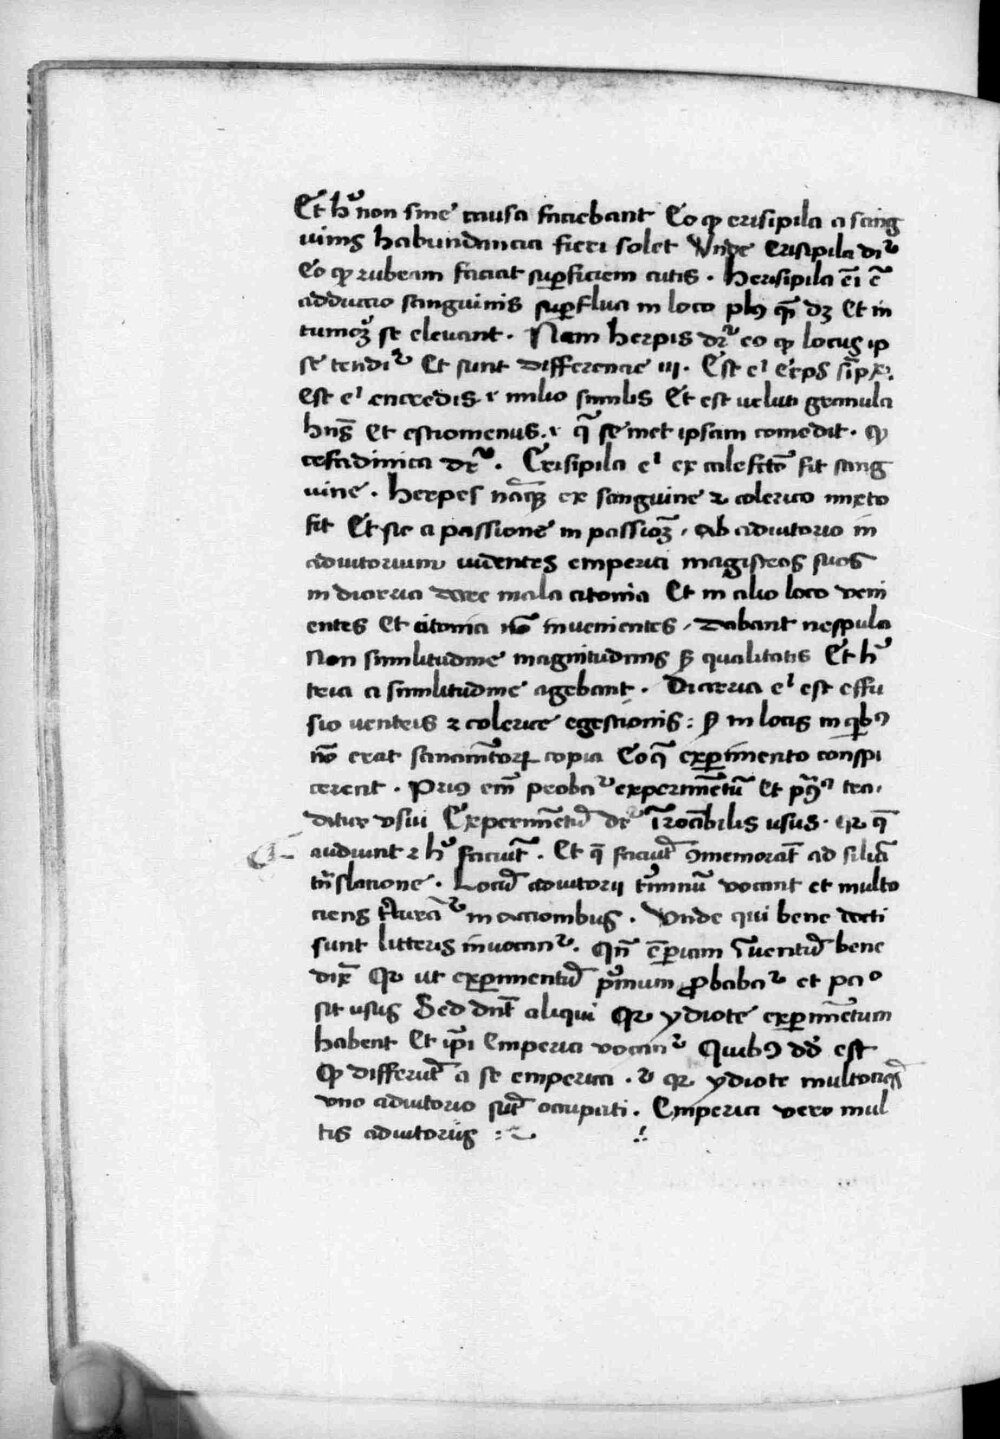 Et h᷒ non sine causa faciebant Eo ꝙ erisipila a sang
uinis habundancia fieri solet Vnde Erisipila di᷒
Eo ꝙ rubeam faciat suꝑficiem cutis . herisipila eī ē
adductio sanguinis suꝑflua in loco plꝰ qm̄ dꝫ Et in
tumoꝫ se eleuant . Nam herpis dr᷒ eo ꝙ locus ip
se tendi᷒ Et sunt differencie iii . Est eͥ
Est eͥ encredis milio similis Et est veluti granula
hn̄s Et estiomenus . qᷓ se met ipsam comedit . ꝙ
dr᷒ . Erisipila eͥ ex fit sang
uine . herpes ex sanguine ⁊ colerico mixto
fit Et sic a passione in passioꝫ . Ab adiutorio in
adiutorium videntes emperici magistros suos
in diarria dare mala citonia Et in alio loco veni
entes Et citonia nō inuenientes . Dabant nespula
Non similitudine magnitudinis qualitatis Et h᷒
teria a similitudine agebant . Diarria eͥ est effu
sio ventris ⁊ colerice egestionis : in locis in qͥbꝰ
nō erat copia Eoqᷓ exꝑimento conspi
cerent . Priꝰ em̄ proba᷒ experimētū Et tra
ditur vsui Experimētū dr᷒ usus . Qꝛ qᷓ
audiunt ⁊ h᷒ faciūt . Et qᷓ faciūt ꝯmemorāt ad
tn̄slacione . Locū adiutorii vocant et multo
ciens in accionibus . Vnde qui bene docti
sunt litteris inuocan᷒ . Qn̄ bene
dix̄ Qꝛ ut exꝑimentū pͥmum ꝓbaba᷒ et
sit usus Sed dn̄t aliqui Qꝛ ydiote exꝑimētum
habent Et ip̄i Emperici vocan᷒ Quibꝰ dd̄ est
Qꝛ differūt a se emperici . ⁊ qꝛ ydiote multociēs
vno adiutorio sūt occupati . Emperici vero mul
tis adiutoriis